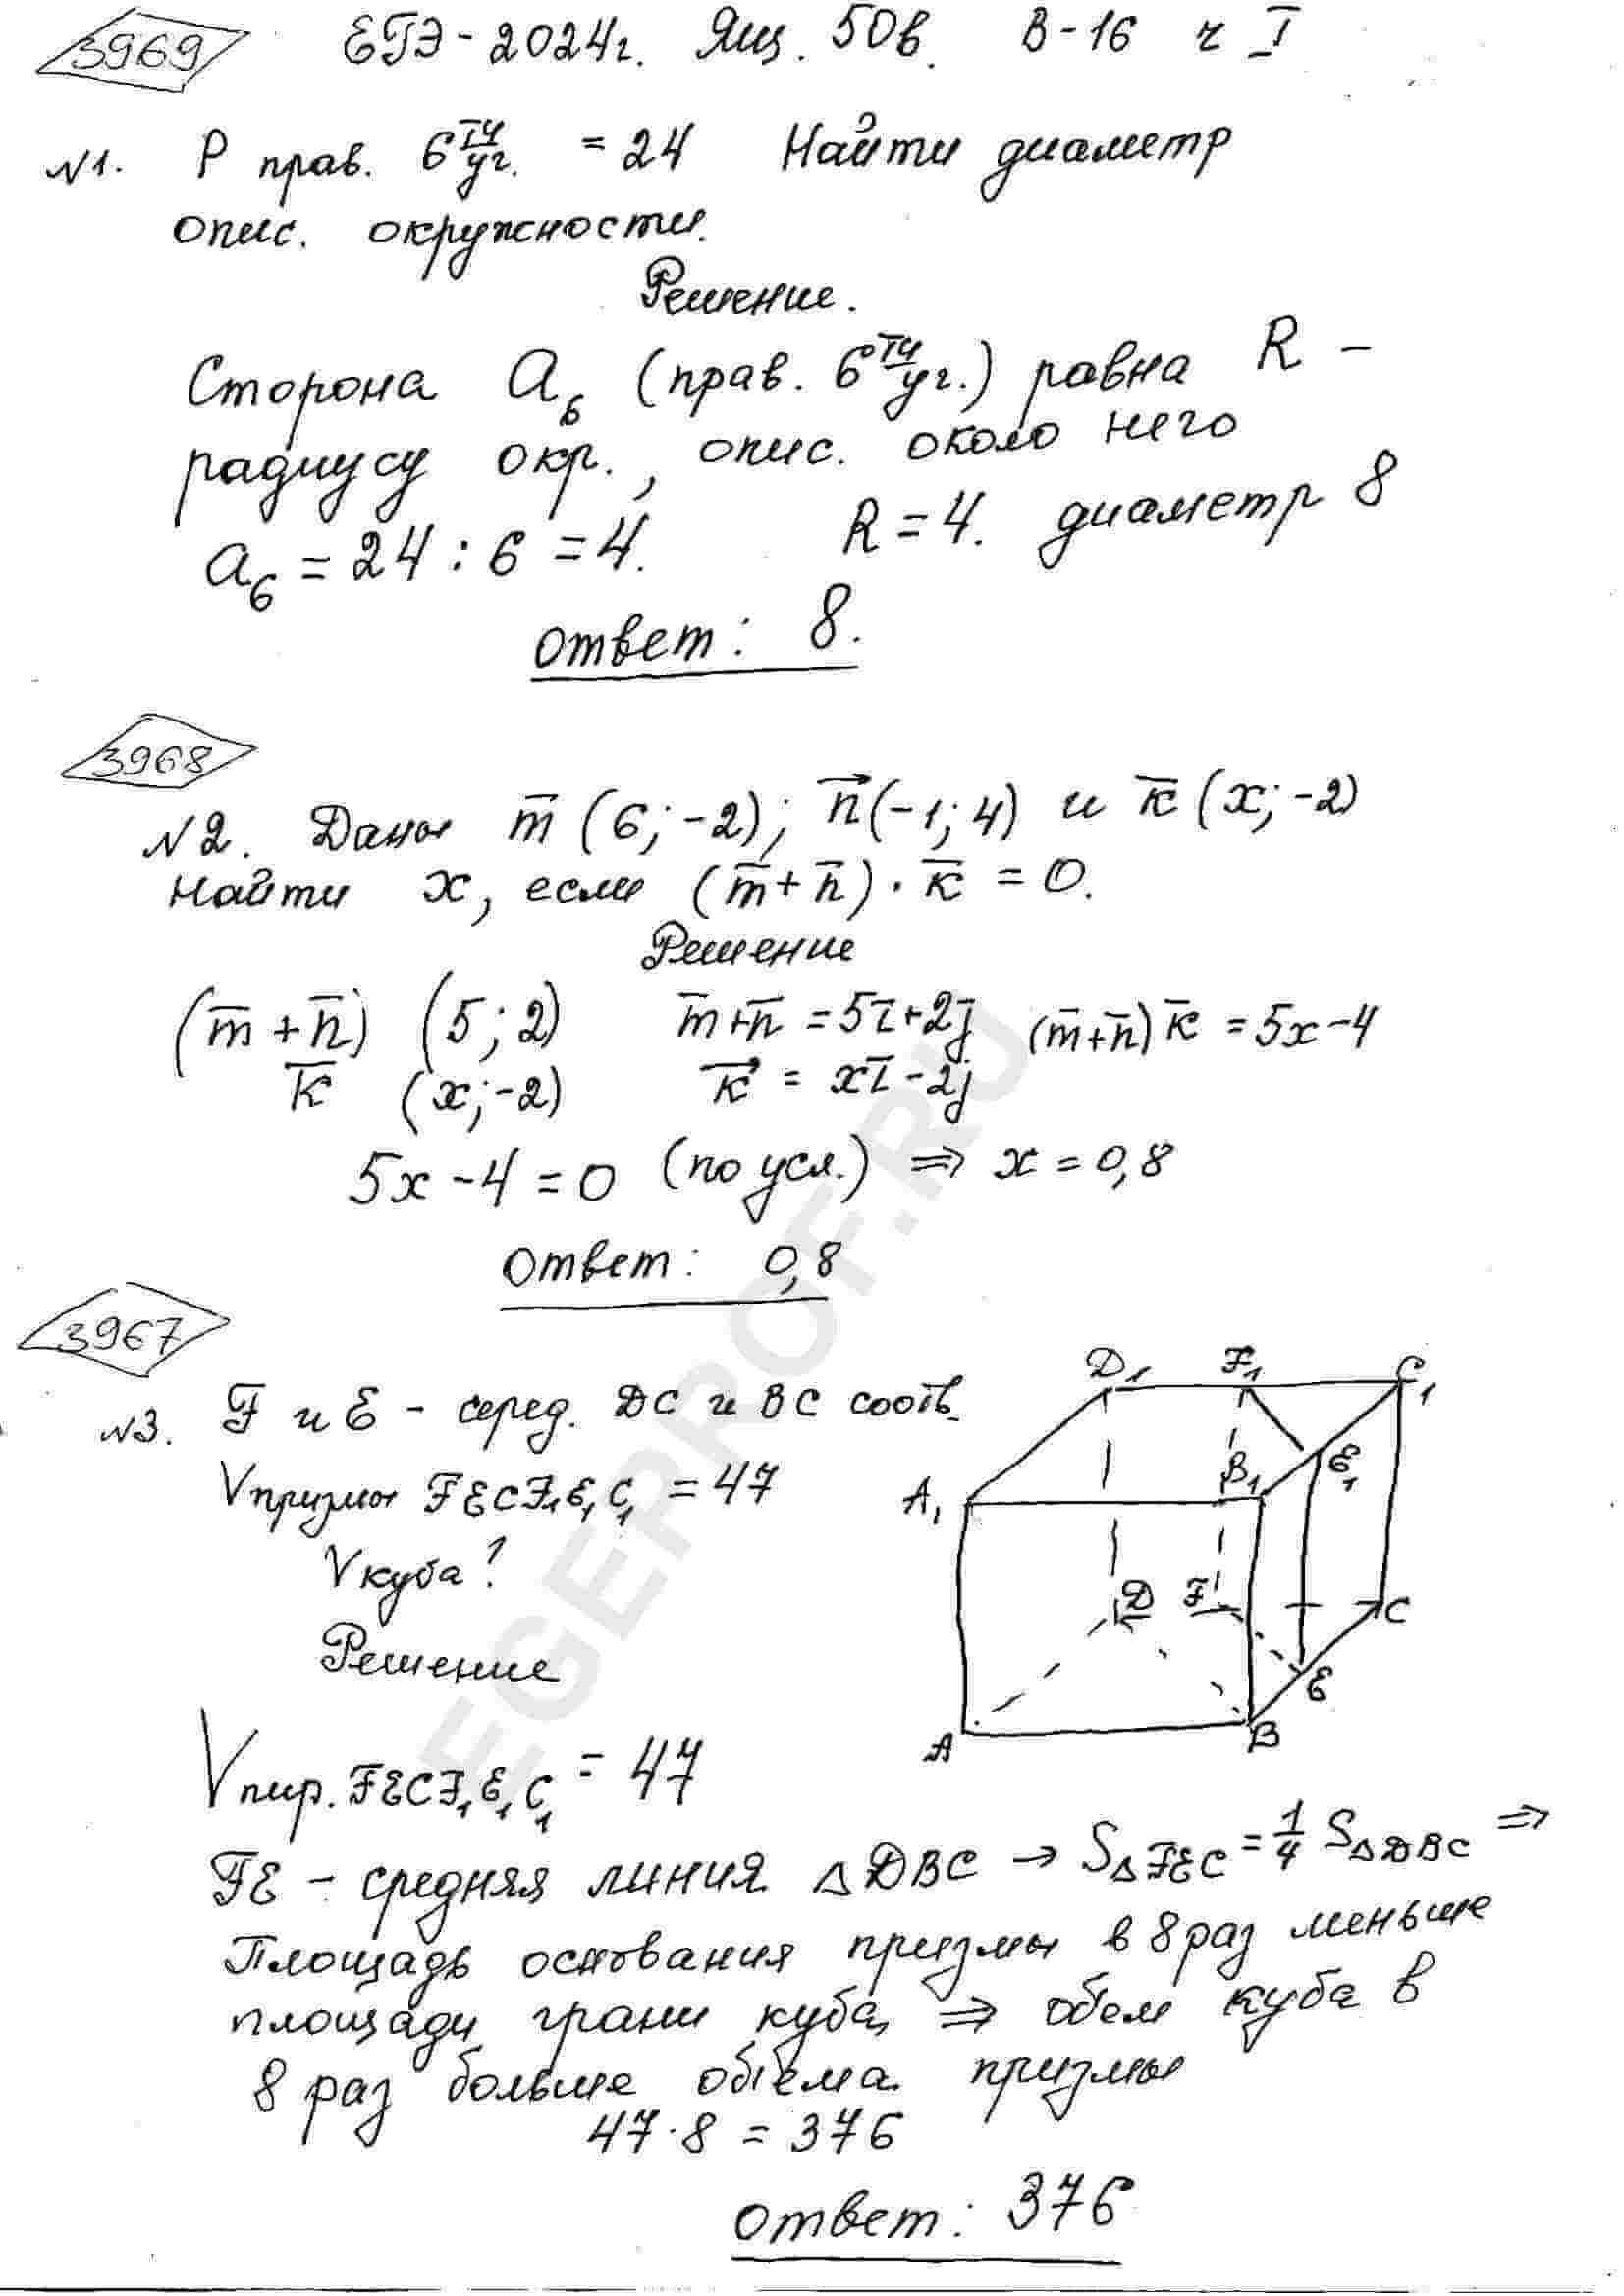 3969 ЕГЭ-2024г. Ящ. 50в. В-16 ч I
№1. P прав. 6ти уг. = 24 Найти диаметр
опис. окружности.
Решение.
Сторона a₆ (прав. 6ти уг.) равна R –
радиусу окр., опис. около него
a₆ = 24 : 6 = 4. R = 4. диаметр 8
Ответ: 8.
3968
№2. Даны m̅ (6; -2); n⃗(-1; 4) и k̅ (x; -2)
Найти x, если (m̅ + n̅) · k̅ = 0.
Решение
(m̅ + n̅) (5; 2) m̅+n̅ = 5i̅+2j (m̅+n̅) k̅ = 5x-4
k̅ (x; -2) k⃗ = xi̅ - 2j
5x - 4 = 0 (по усл.) ⇒ x = 0,8
Ответ: 0,8
3967
№3. F и E - серед. DC и BC соотв.
Vпризмы FECF₁E₁C₁ = 47
Vкуба?
Решение
D₁ F₁ C₁
A₁ B₁ E₁
D F C
E
A B
Vпир. FECF₁E₁C₁ = 47
FE - средняя линия △DBC → S△FEC = 1/4 S△DBC ⇒
Площадь основания призмы в 8 раз меньше
площади грани куба, ⇒ обем куба в
8 раз больше объема призмы
47·8 = 376
Ответ: 376
EGEPROF.RU